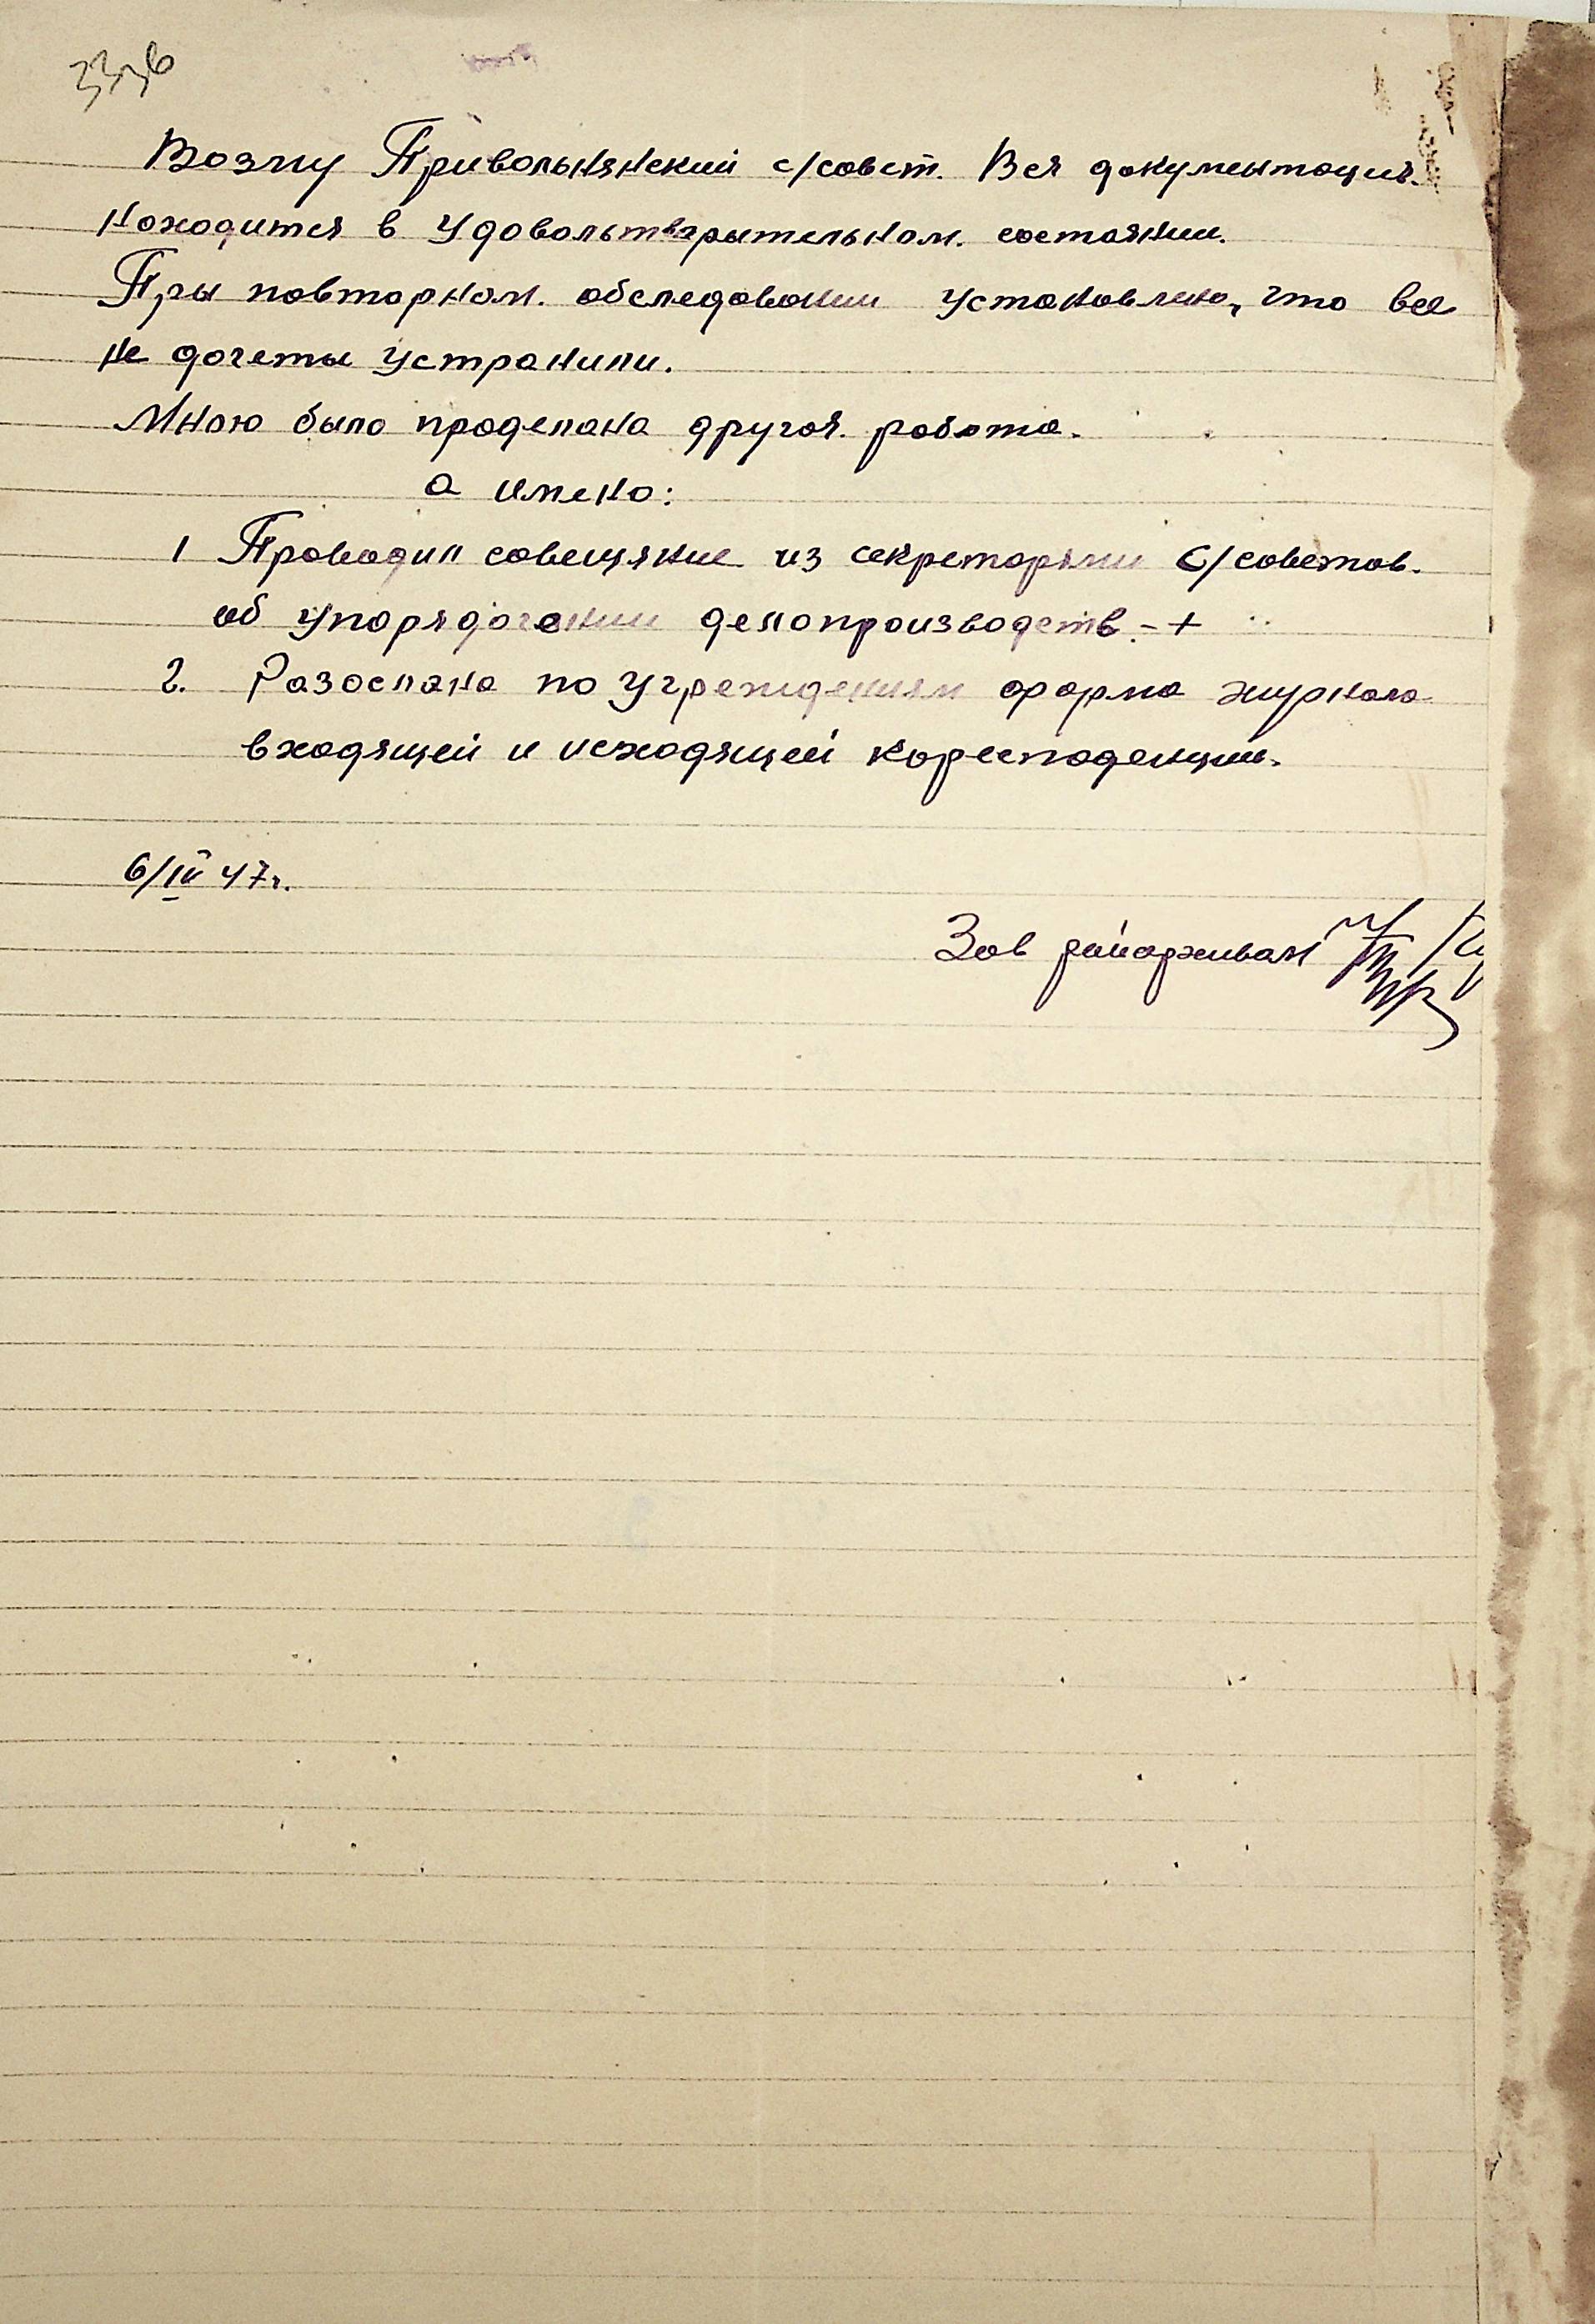 Возму Привольнянский с/совет. Вся документация
находится в удовольтварытельном. состоянии.
Пры повторном. обследовании установлено, что все
не дочеты устранили.
Мною было проделана другоя работа.
а имено:
1 Проводил совещяние из секреторями с/советов.
об упорядочении делопроизводств. - +
2. Разослана по учреждениям форма журнала
входящей и исходящей коресподенции.
6/IV 47г.
Зав райархивам